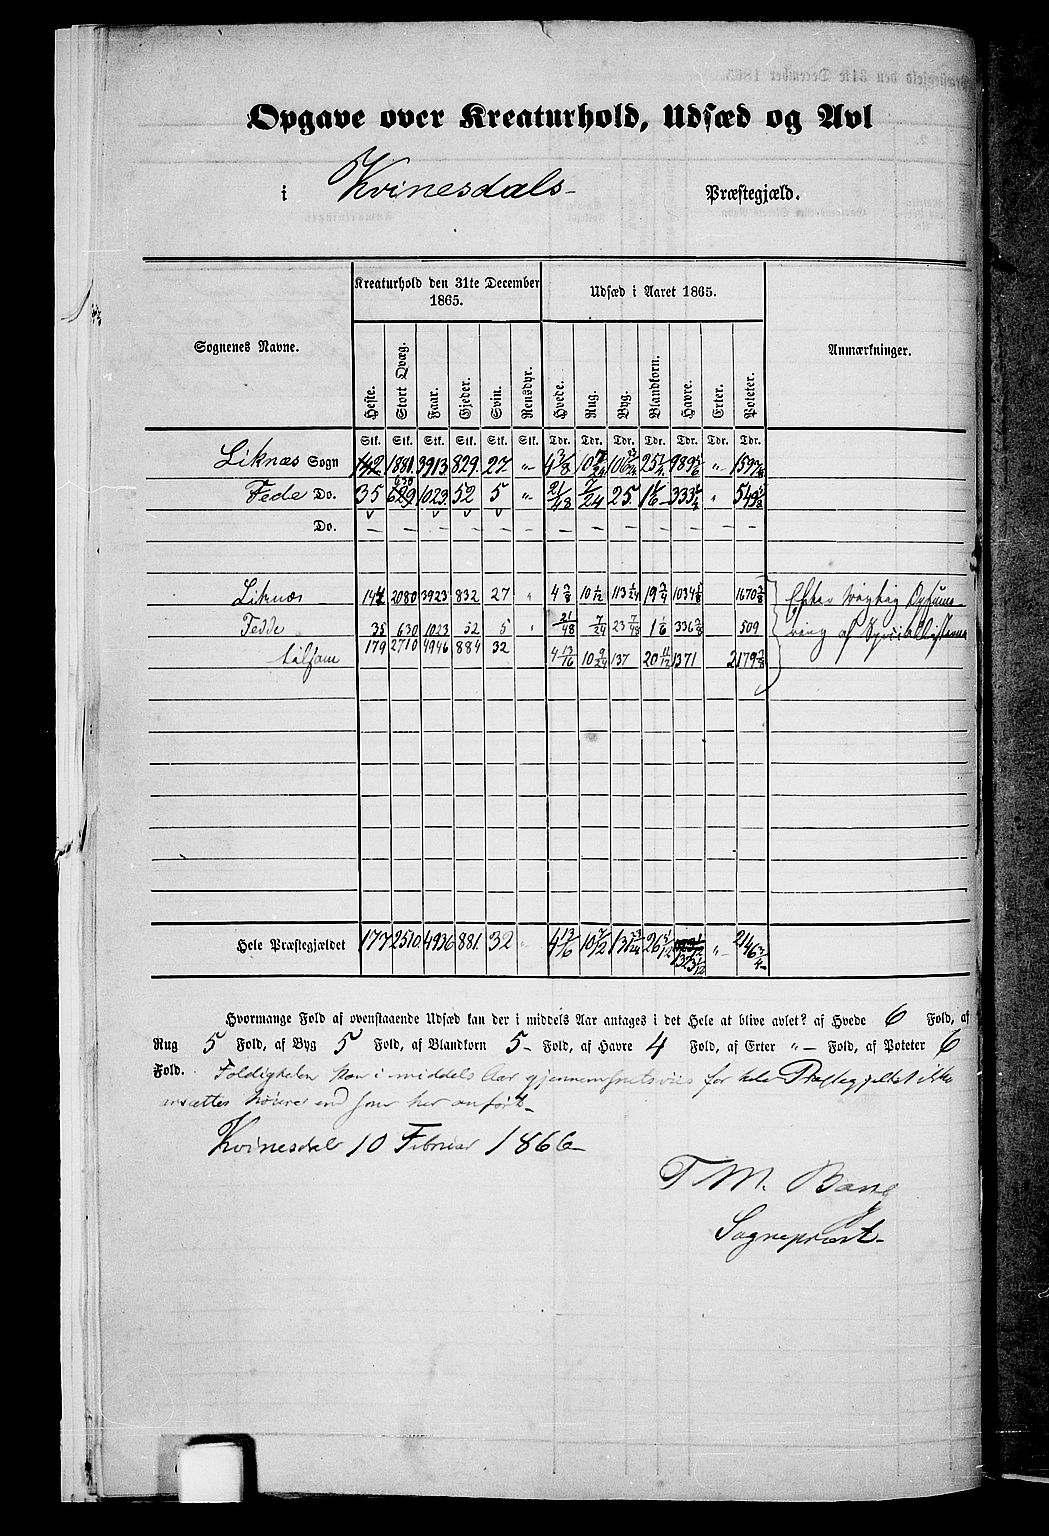 Opgave over Kreaturhold, Udsæd og Avl
i Kvinesdals Præstegjæld.
Kreaturhold den 31te December 1865. Udsæd i Aaret 1865.
Sognenes Navne. Heste. Stort Qvæg. Faar. Gjeder. Svin. Rensdyr. Hvede. Rug. Byg. Blandkorn. Havre. Erter. Poteter. Anmærkninger.
Stk. Stk. Stk. Stk. Stk. Stk. Tdr. Tdr. Tdr. Tdr. Tdr. Tdr. Tdr.
Liknæs Sogn 142 1881 3913 829 27 "
630
Fede Do. 35 629 1023 52 5 " 21/48 7/24 25 1 1/6 " 
Do. – – – – – – – – – – – –
Liknæs 2080 3923 832 27 " 4 3/8 10 1/12 113 1/24 1034 5/8 1670 3/8
Fedde 35 630 1023 52 5 " 21/48 7/24 23 7/48 1 1/6 336 3/8 509
tilsam 179 2710 4946 884 32 4 13/16 10 9/24 137 20 11/12 1371 2179 3/8
Hele Præstegjældet 177 2510 4936 881 32 " 4 13/16 10 7/12 131 23/24 26 5/12 " 2146 3/4
Hvormange Fold af ovenstaaende Udsæd kan der i middels Aar antages i det Hele at blive avlet? af Hvede 6 Fold, af
Rug 5 Fold, af Byg 5 Fold, af Blandkorn 5 Fold, af Havre 4 Fold, af Erter " Fold, af Poteter 6
Fold. Foldigheden kan i middels Aar gjennemsnitsviis for hele Præstegjeldet ikke
ansættes høiere end som her anført.
Kvinesdal 10 Februar 1866
T M. Bang
Sognepræst.